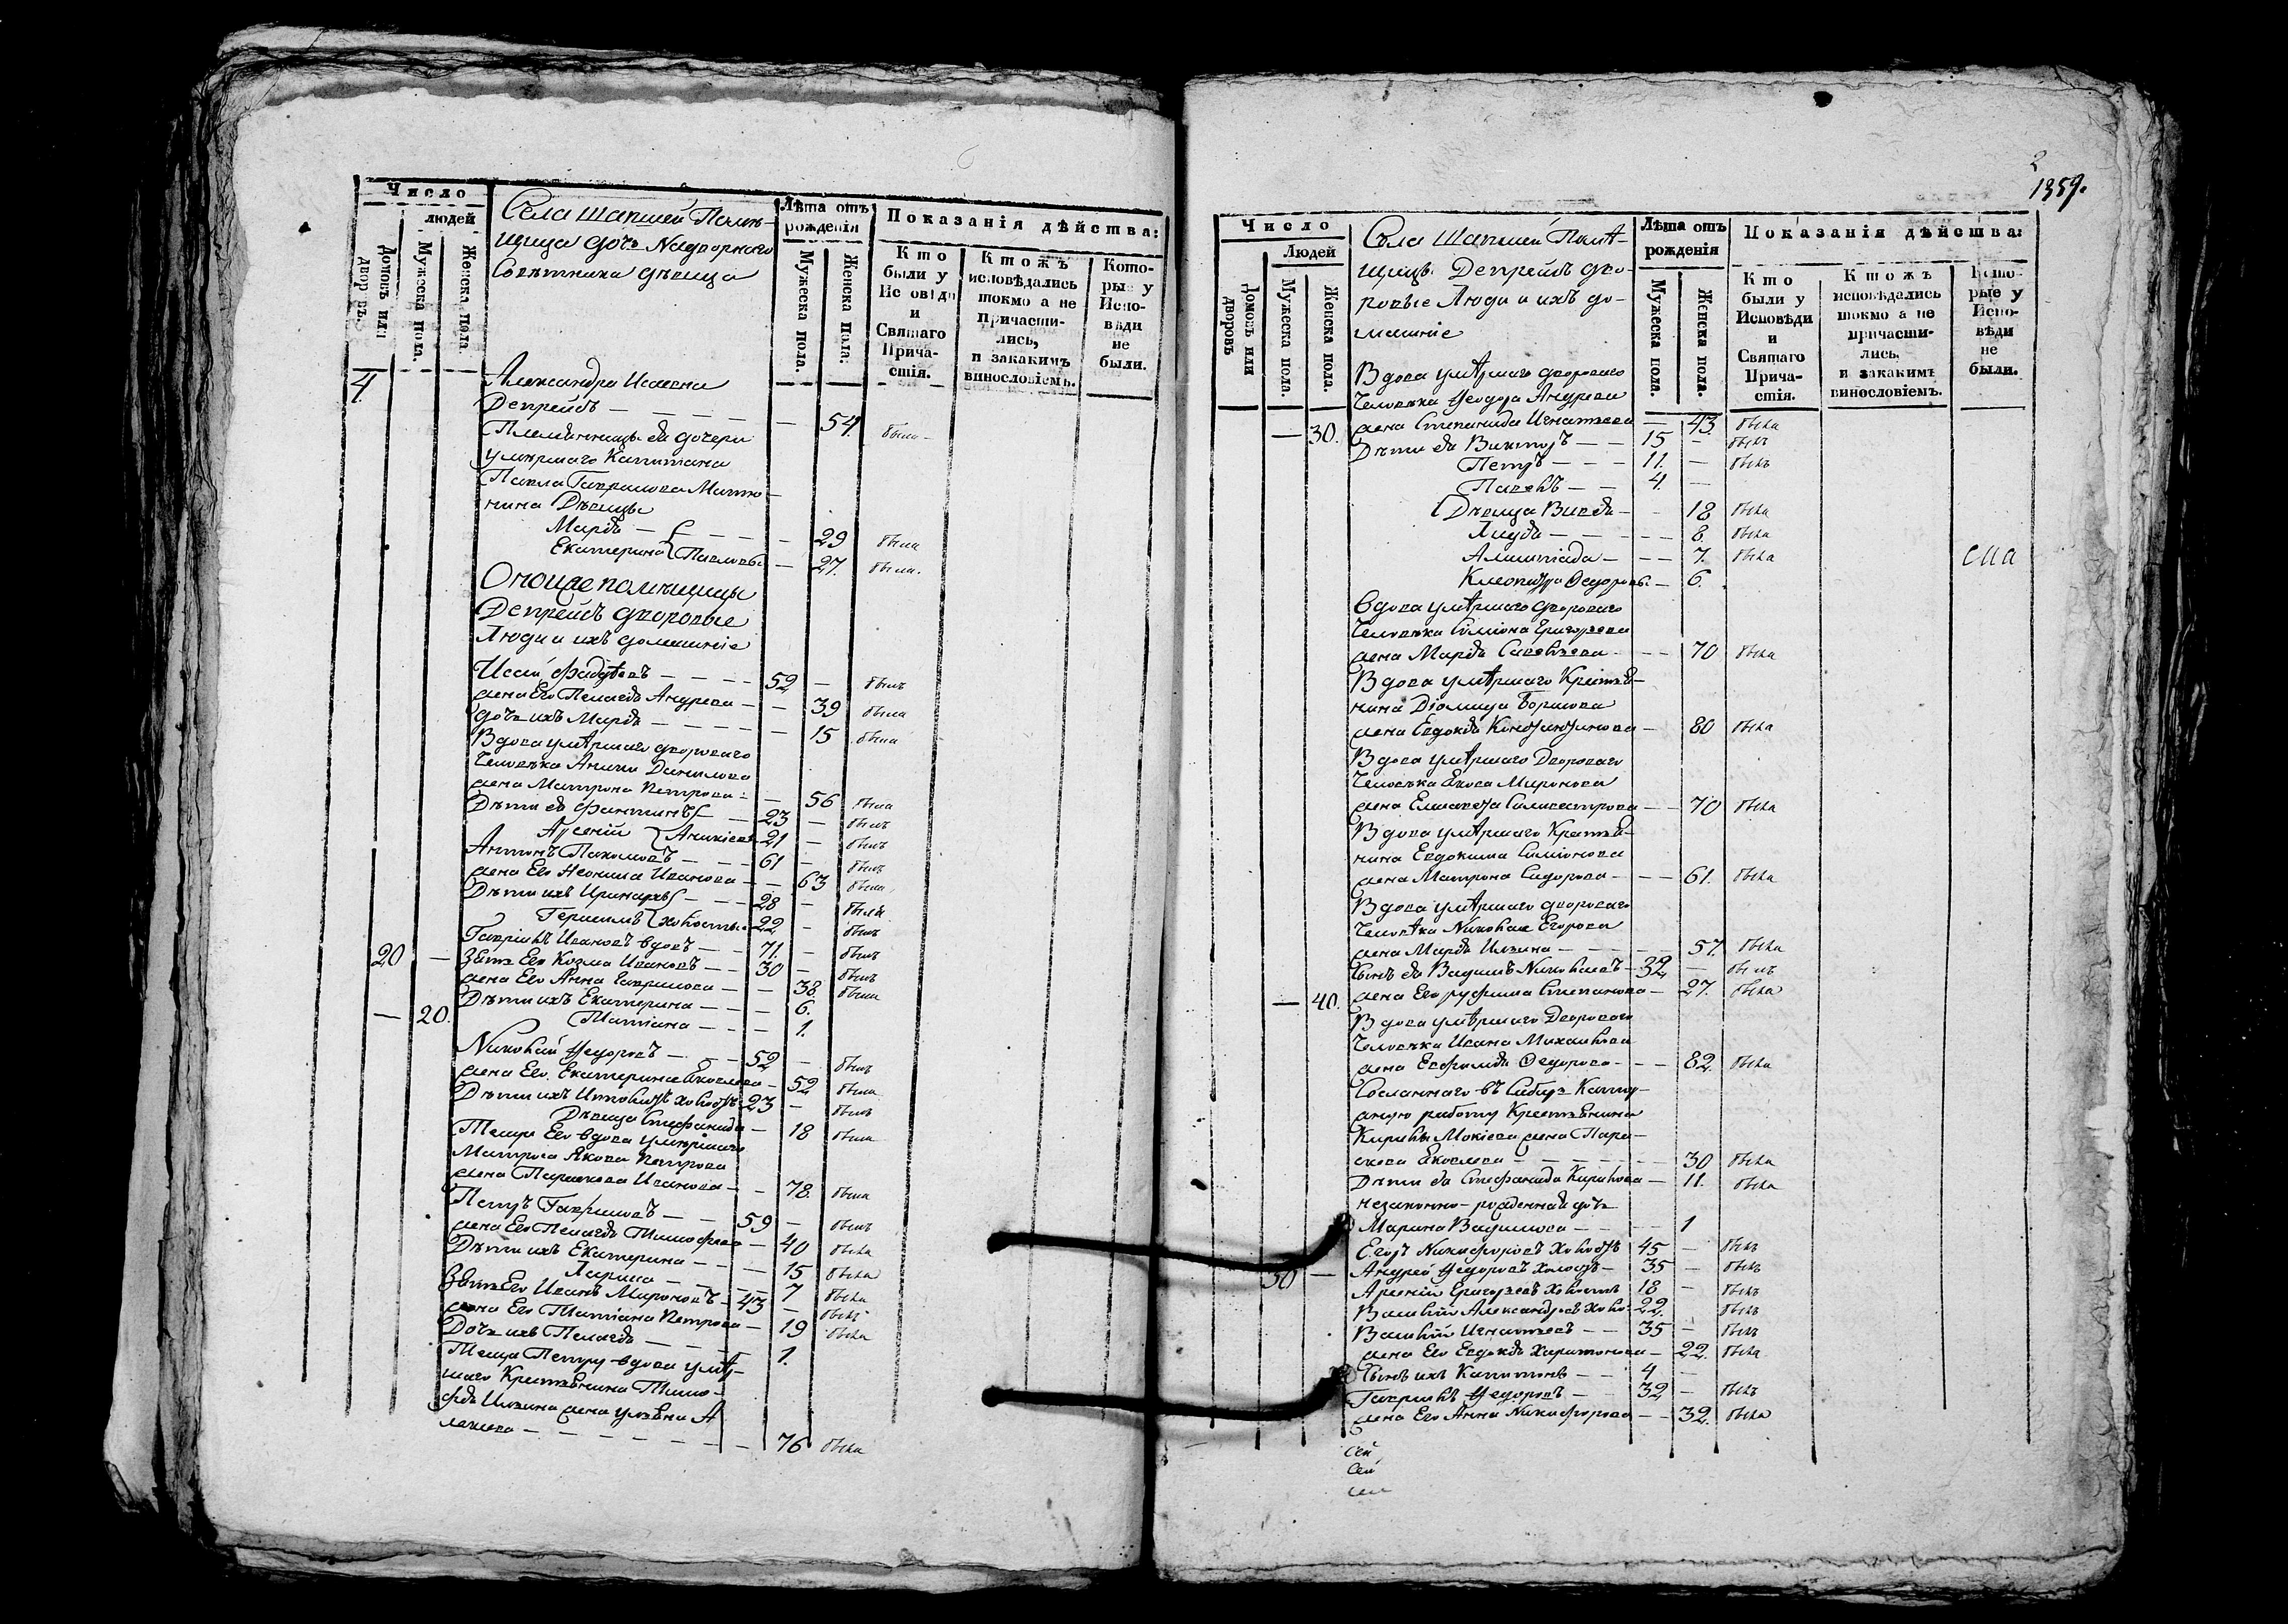 Число
людей
Домовъ или
дворовъ.
Мужеска пола.
Женска пола.
Села Шапшей Помѣ-
щица дочь Надворнаго
Совѣтника дѣвица
Лѣта отъ
рожденія
Мужеска пола.
Женска пола.
Показанія дѣйства:
Кто
были у
Исповѣди
и
Святаго
Прича-
стія.
Ктожъ
исповѣдались
токмо а не
причасти-
лись,
и закакимъ
винословіемъ.
Кото-
рые у
Испо-
вѣди
не
были.
4 Александра Исаевна
Депрейсъ — — — — — 54. была
Племянницы ея дочери
умершаго Капитана
Павла Гаврилова
нина Дѣвицы
Марѳа — — — 29 была
Екатерина Павловы — 27. была.
Оной же помѣщицы
Депрейсъ дворовые
Люди и ихъ домашніе
52 — былъ
жена Его Пелагея Андреева — — 39 была
дочь ихъ Марѳа — — — — 15 была
Вдова умершаго двороваго
Человѣка Аники Данилова
жена Матрона Петрова — 56 была
Дѣти ея — 23 — былъ
Арсеній Аникіевы 21 — былъ
Антонъ Пахомовъ — — 61 — былъ
жена Его Неонила Иванова — — 63 была
Дѣти ихъ Иринархъ — — — 28 — былъ
Герасимъ холосты 22 — былъ
Гавріилъ Ивановъ вдовъ — — 71. — былъ
20 — Зять Его Козма Ивановъ — — 30 — былъ
жена Его Анна Гаврилова — — 38 была
Дѣти ихъ Екатерина — — — 6.
— 20. Татіана — — — 1.
Николай Ѳедоровъ — — — 52 — былъ
жена Его Екатерина Яковлева — 52 была
Дѣти ихъ холостъ 23 — былъ
Дѣвица Стефанида — 18 была
Теща Его вдова умершаго
Матроса Якова Петрова
жена Параскева Иванова — — 78. была
Петръ Гавриловъ — — 59 — былъ
жена Его Пелагея Тимофеева — 40 была
Дѣти ихъ Екатерина — — — 15 была
Ларина — — — 7 была
Зять Его Иванъ Мироновъ — 43 — былъ
жена Его Татіана Петрова — 19 была
Дочь ихъ Пелагея — — — 1.
Теща Петру вдова умер-
шаго Крестьянина Тимо-
фея Ильина жена Ульяна А
лексѣева — — — — — — — 76 была
1359.
Число
Людей
Домовъ или
дворовъ
Мужеска пола
Женска пола.
Села Шапшей Помѣ-
щицы Депрейсъ дво-
ровые Люди и ихъ до-
машніе
Лѣта отъ
рожденія
Мужеска пола.
Женска пола.
Показанія дѣйства:
Кто
были у
Исповѣди
и
Святаго
Прича-
стія.
Ктожъ
исповѣдались
токмо а не
причасти-
лись,
и закакимъ
винословіемъ.
Кото-
рые у
Испо-
вѣди
не
были.
Вдова умершаго двороваго
Человѣка Ѳеодора Андреева
— 30. жена Степанида Игнатьева — 43. была
Дѣти ея Викторъ — — 15 — былъ
Петръ — — — 11. — былъ
Павелъ — — 4. —
Дѣвица — — 18 была
Лидія — — — — 8. была
Алимпіада — — — 7. была
Клеопатра Ѳедоровы — 6.
Вдова умершаго двороваго
Человѣка Симіона Григорьева
жена Марѳа Савельева — — 70 была
Вдова умершаго Крестья-
нина Діомида Борисова
жена Евдокія Константинова — 80 была
Вдова умершаго Двороваго
Человѣка Якова Миронова
жена Елисавета Силивестрова — — 70 была
Вдова умершаго Крестья-
нина Евдокима Симіонова
жена Матрона Сидорова — — — 61. была
Вдова умершаго двороваго
Человѣка Николая Егорова
жена Марѳа Ильина — — — — 57. была
Сынъ ея Вадимъ Николаевъ — 32 — былъ
— 40. жена Его Руфима Степанова — 27. была
Вдова умершаго Двороваго
Человѣка Ивана Михаилова
жена Евфимія Ѳедорова — — — 82. была
Сосланнаго въ Сибирь Катор-
жную работу Крестьянина
Кирилы Мокіева жена Пара-
скева Яковлева — — — — — 30 была
Дѣти ея Стефанида Кирилова — 11. была
незаконно-рожденная дочь
Марина Вадимова — — — — 1
Егоръ Никифоровъ холостъ 45 — былъ
50 — Андрей Ѳедоровъ холостъ — 35 — былъ
Арсеній Григорьевъ холостъ 18 — былъ
Василій Александровъ холо- 22. былъ
Василій Игнатьевъ — — 35 — былъ
жена Его Евдокія Харитонова — 22. была
Сынъ ихъ Капитонъ — — 4 —
Гавриилъ Ѳедоровъ — — 32 — былъ
жена Его Анна Никифорова — — 32. была
сей
сей